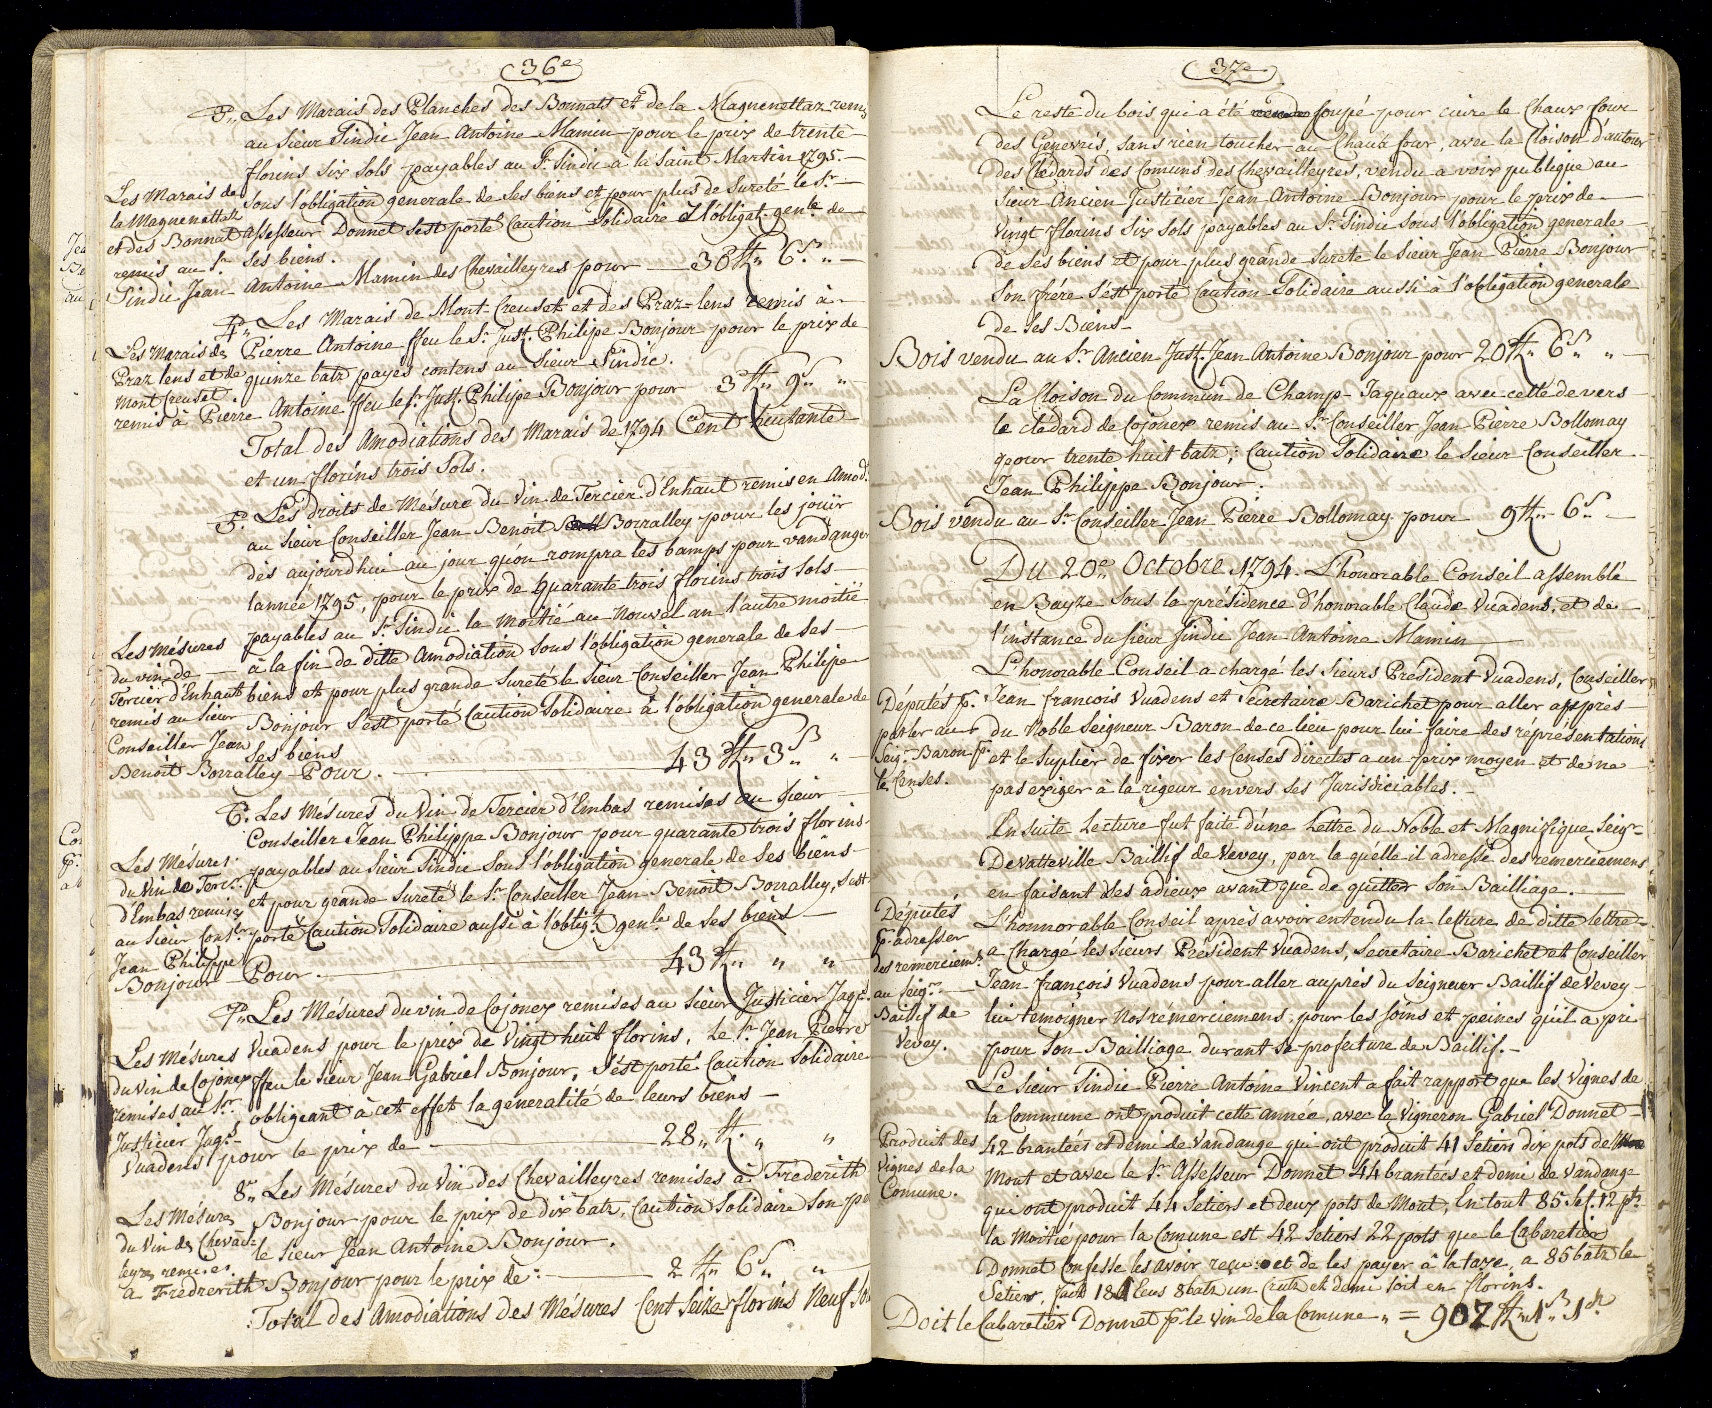 36e
3„ Les Marais des Planches des Bonnats et de la Maguenettaz remis
au Sieur Sindic Jean Antoine Mamin pour le prix de trente
florins six sols payables au Sr. Sindic à la Saint Martin 1795.
Les Marais de
la Maguenettaz
et des Bonnat
remis au Sr.
Sindic Jean
sous l'obligation generale de ses biens et pour plus de sureté le Sr.
Assesseur Donnet s'est porté Caution Solidaire à l'obligat. genle. de
ses biens.
Antoine Mamin des Chevailleyres pour — 36 ff„ 6 s„ „
4„ Les Marais de Mont-Creuset et des Praz-lens remis à
Pierre Antoine ffeu le Sr. Just. Philipe Bonjour pour le prix de
quinze batz payés contens au Sieur Sindic.
Les Marais des
Praz lens et de
Mont Creuset
remis à Pierre Antoine ffeu le Sr. Just. Philipe Bonjour pour 3 ff„ 9 s„ „
Total des Amodiations des Marais de 1794 Cent huitante
et un florins trois Sols.
5. Les droits de Mésure du Vin de Tercier d'Enhaut remis en Amod.
au Sieur Conseiller Jean Benoit Borralley pour les jouïr
dès aujourdhui au jour quon rompra les bamps pour vandanger
lannée 1795, pour le prix de quarante trois florins trois Sols
payables au Sr. Sindic la moitié au nouvel an l'autre moitié
à la fin de ditte Amodiation sous l'obligation generale de ses
biens et pour plus grande sureté le Sieur Conseiller Jean Philipe
Bonjour s'est porté Caution Solidaire à l'obligation generale de
ses biens
Les Mésures
du vin de
Tercier d'Enhaut
remis au Sieur
Conseiller Jean
Benoit Borralley Pour. — 43 ff„ 3 s„ „
6. Les Mésures du Vin de Tercier d'Embas remises au Sieur
Conseiller Jean Philippe Bonjour pour quarante trois florins
payables au Sieur Sindic sous l'obligation generale de ses biens
et pour grande sureté le Sr. Conseiller Jean Benoit Borralley, s'est
porté Caution Solidaire aussi à l'oblig. genle. de ses biens
Les Mésures
du Vin de Terc.
d'Embas remises
au Sieur Consr.
Jean Philippe
Bonjour Pour. — 43 ff„ „ „
7„ Les Mésures du vin de Cojonex remises au Sieur Justicier Jaqs.
Vuadens pour le prix de Vingt huit florins, Le Sr. Jean Pierre
ffeu le Sieur Jean Gabriel Bonjour, s'est porté Caution Solidaire
obligeant à cet effet la généralité de leurs biens
Les Mésures
du Vin de Cojonex
remises au Sr.
Justicier Jaqs.
Vuadens pour le prix de — 28„ ff. „ „
8„ Les Mésures du Vin des Chevailleyres remises à Fréderith
Bonjour pour le prix de dix batz, Caution Solidaire Son pe
le Sieur Jean Antoine Bonjour.
Les Mésures
du Vin des Chevail=
leyres remises
à Fredrerith Bonjour pour le prix de: — 2 ff„ 6 s„ „
Total des Amodiations des Mésures Cent Seize florins Neuf Sols
37e
Le reste du bois qui a été coupé pour cuire le Chaux four
des Genevrés, sans rien toucher au Chaux four, avec la Cloison d'autour
des Clédards des Comuns des Chevailleyres, vendu a voix publique au
Sieur Ancien Justicier Jean Antoine Bonjour pour le prix de
Vingt florins six sols payables au Sr. Sindic sous l'obligation generale
de ses biens et pour plus grande sureté le Sieur Jean Pierre Bonjour
son frére s'est porté Caution Solidaire aussi à l'obligation generale
de ses Biens
Bois vendu au Sr. Ancien Just. Jean Antoine Bonjour pour 20 ff„ 6 s„ „
La Cloison du Commun de Champ-Jaquaux avec cette devers
le clédard de Cojonex remis au Sr. Conseiller Jean Pierre Bollomay
pour trente huit batz; Caution Solidaire le Sieur Conseiller
Jean Philippe Bonjour.
Bois vendu au Sr. Conseiller Jean Pierre Bollomay pour 9 ff„ 6 s„
Du 20e. Octobre 1794. L'honorable Conseil assemblé
en Bayze sous la présidence d'honorable Claude Vuadens, et de
l'instance du Sieur Sindic Jean Antoine Mamin
L'honorable Conseil a chargé les Sieurs Président Vuadens, Conseiller
Jean François Vuadens et Secretaire Barichet pour aller apprès
du Noble Seigneur Baron de ce lieu pour lui faire des réprésentations
et le suplier de fixer les Censes directes a un prix moyen et de ne
pas exiger à la rigeur envers ses Jurisdiciables.
Députés pr.
parler au
Seigr. Baron pr.
le Censes.
Ensuite Lecture fut faite d'une Lettre du Noble et Magnifique Seigr.
De Vatteville Baillif de Vevey, par la quelle il adresse des remerciemens
en faisant ses adieux avant que de quitter son Bailliage.
L'honnorable Conseil après avoir entendu la lecture de ditte lettre
a Chargé les Sieurs Président Vuadens, Secretaire Barichet et Conseiller
Jean françois Vuadens pour aller auprès du Seigneur Baillif de Vevey
lui témoigner nos rémerciemens, pour les soins et peines qu'il a pri
pour son Bailliage durant sa profecture de Baillif.
Députés
pr. adresser
des remerciems.
au Seigr.
Baillif de
Vevey.
Le Sieur Sindic Pierre Antoine Vincent a fait rapport que les Vignes de
la Commune ont produit cette année, avec le Vigneron Gabriel Donnet
42 brantées et demi de Vandange qui ont produit 41 Setiers dix pots de
Mout et avec le Sr. Assesseur Donnet 44 brantées et demi de Vandange
qui ont produit 44 Setiers et deux pots de Mout, En tout 85 Set. 12 pts.
la Moitié pour la Comune est 42 Setiers 22 pots que le Cabaretier
Donnet Confesse les avoir reçu et de les payer à la taxe, a 85 batz le
Setiers, fait 181 leus 8 batz un Crutz et demi soit en florins.
Produit des
Vignes de la
Comune.
Doit le Cabaretier Donnet pr. le Vin de la Comune „ = 907 ff„ 1 s„ 1 d.